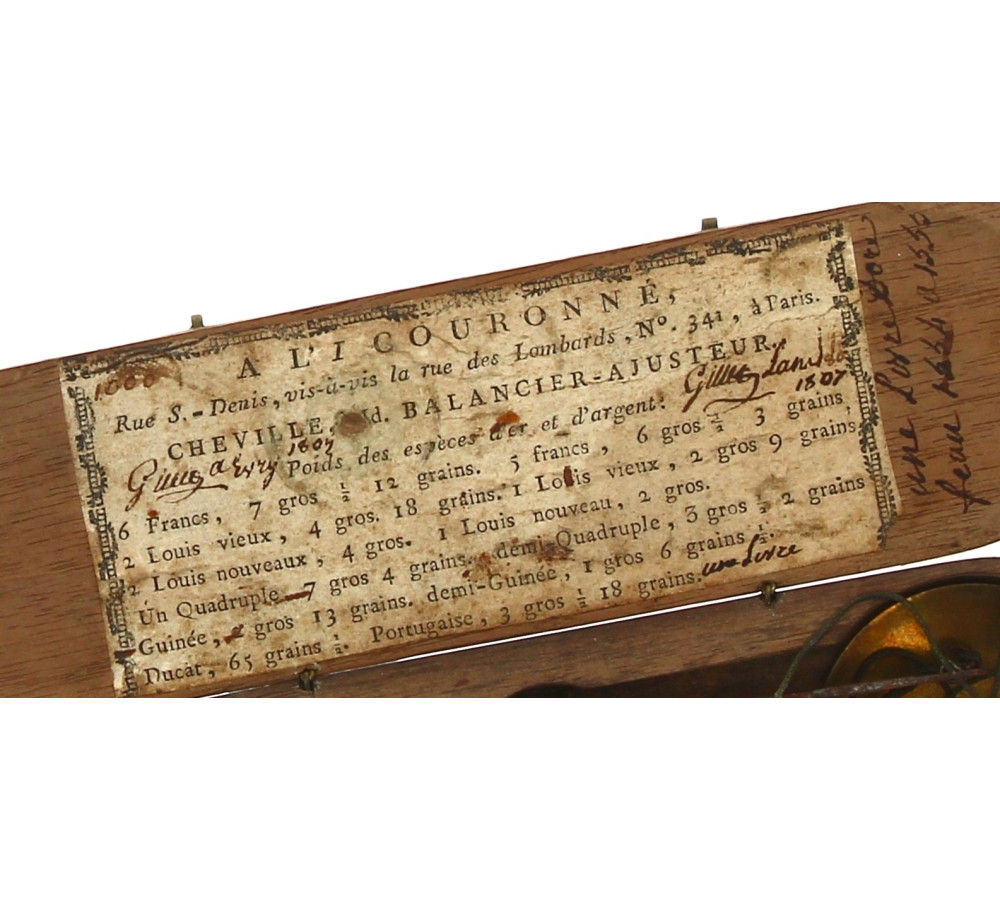 A L'I COURONNÉ,
1000
Rue S.-Denis, vis-à-vis la rue des Lombards, N°. 341, à Paris.
CHEVILLE, d. BALANCIER-AJUSTEUR.
1807
1807
Poids des espèces d'or et d'argent.
6 Francs, 7 gros ½ 12 grains. 5 francs, 6 gros ½ 3 grains,
2 Louis vieux, 4 gros. 18 grains. 1 Louis vieux, 2 gros 9 grains,
2 Louis nouveaux, 4 gros. 1 Louis nouveau, 2 gros.
Un Quadruple 7 gros 4 grains. demi Quadruple, 3 gros ½ 2 grains
Guinée, 2 gros 13 grains. demi-Guinée, 1 gros 6 grains ½.
Ducat, 65 grains ½. Portugaise, 3 gros ½ 18 grains. une Livre
une Livre